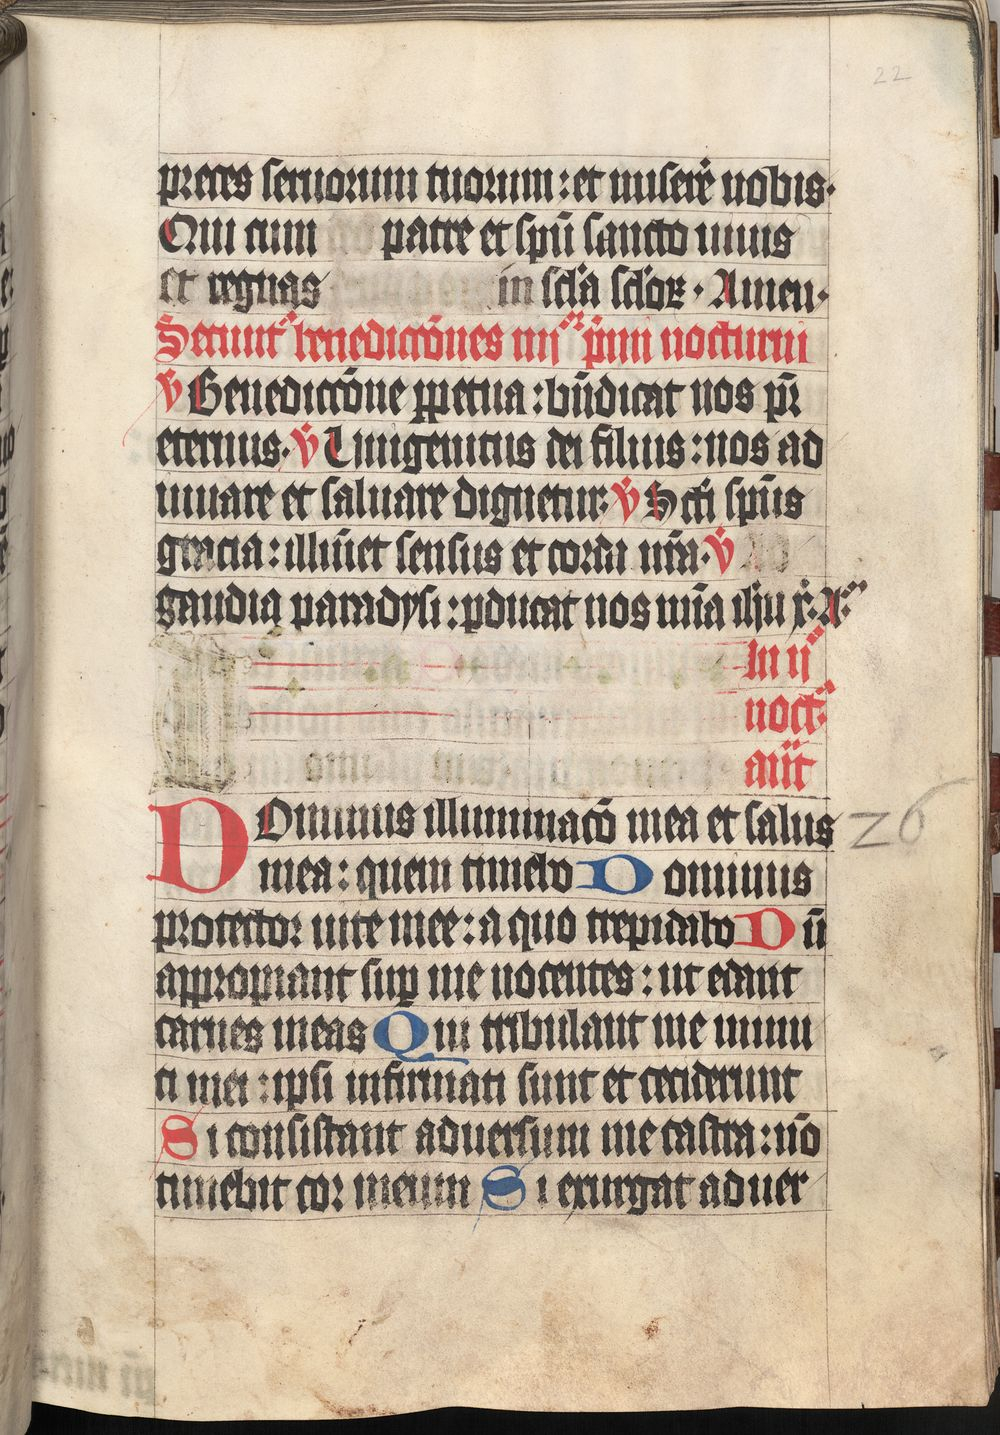 22
preces seruorum tuorum : et miserē nobis.
Qui cum patre et spū sancto uiuis
et regnas in scl'a scl'oꝝ . Amen.
Secunt~ benediccōnes
nocturni
v̄ Benediccōne ꝑpetua : bn̄dicat nos pr̄
eternus. v̄ Unigenitus dei filius : nos ad
iuuare et saluare dignetur. v̄ Scī spūs
gracia : illūiet sensus et corda nr̄a. v̄ Ad
gaudia paradysi : ꝑducat nos
In ii
noct~
an̄t
Dominus illuminacō mea et salus
26
mea : quem timebo Dominus
protector uite mee : a quo trepidabo Dū
appropiant suꝑ me nocentes : ut edant
carnes meas Qui tribulant me inimi
ci mei : ipsi infirmati sunt et ceciderunt
Si consistant aduersum me castra : nō
timebit cor meum Si exurgat aduer